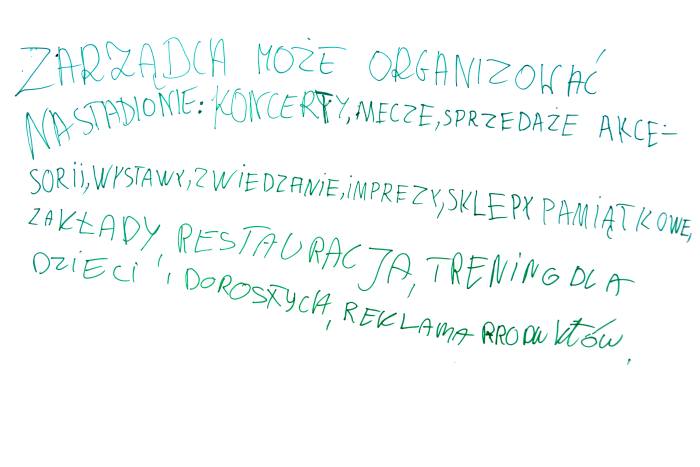 ZARZĄDCA MOŻE ORGANIZOWAĆ
NA STADIONIE: KONCERTY, MECZE, SPRZEDAŻE AKCE-
SORII, WYSTAWY, ZWIEDZANIE, IMPREZY, SKLEPY PAMIĄTKOWE,
ZAKŁADY, RESTAURACJA, TRENING DLA
DZIECI I DOROSŁYCH, REKLAMA PRODUKTÓW.